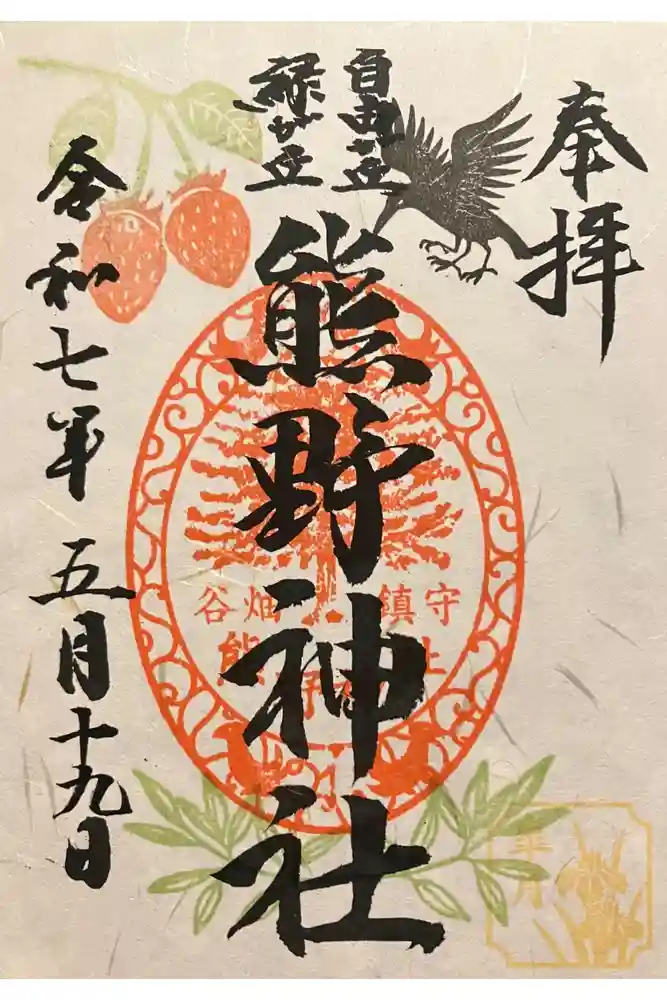 奉拝
自由が丘
緑が丘
熊野神社
令和七年 五月十九日
守
鎮
畑谷
熊野
皐月